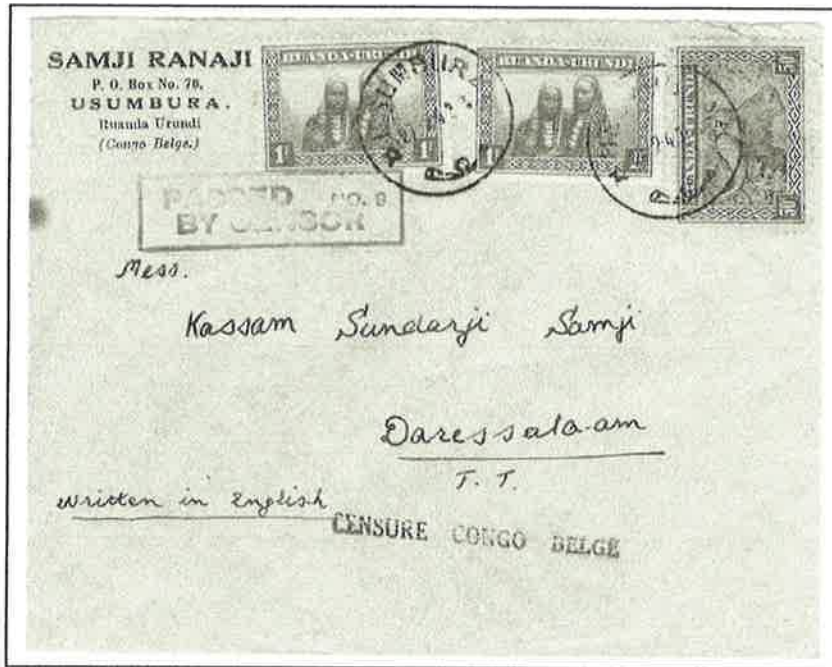 SAMJI RANAJI
P. O. Box No. 76,
USUMBURA.
Ruanda Urundi
(Congo Belge.)
RUANDA-URUNDI
1F
1F
RUANDA-URUNDI
1F
RUANDA-URUNDI
USUMBURA
PASSED NO. 9
BY CENSOR
Mess.
Kassam Sundarji Samji
Daressala-am
T. T.
written in English
CENSURE CONGO BELGE